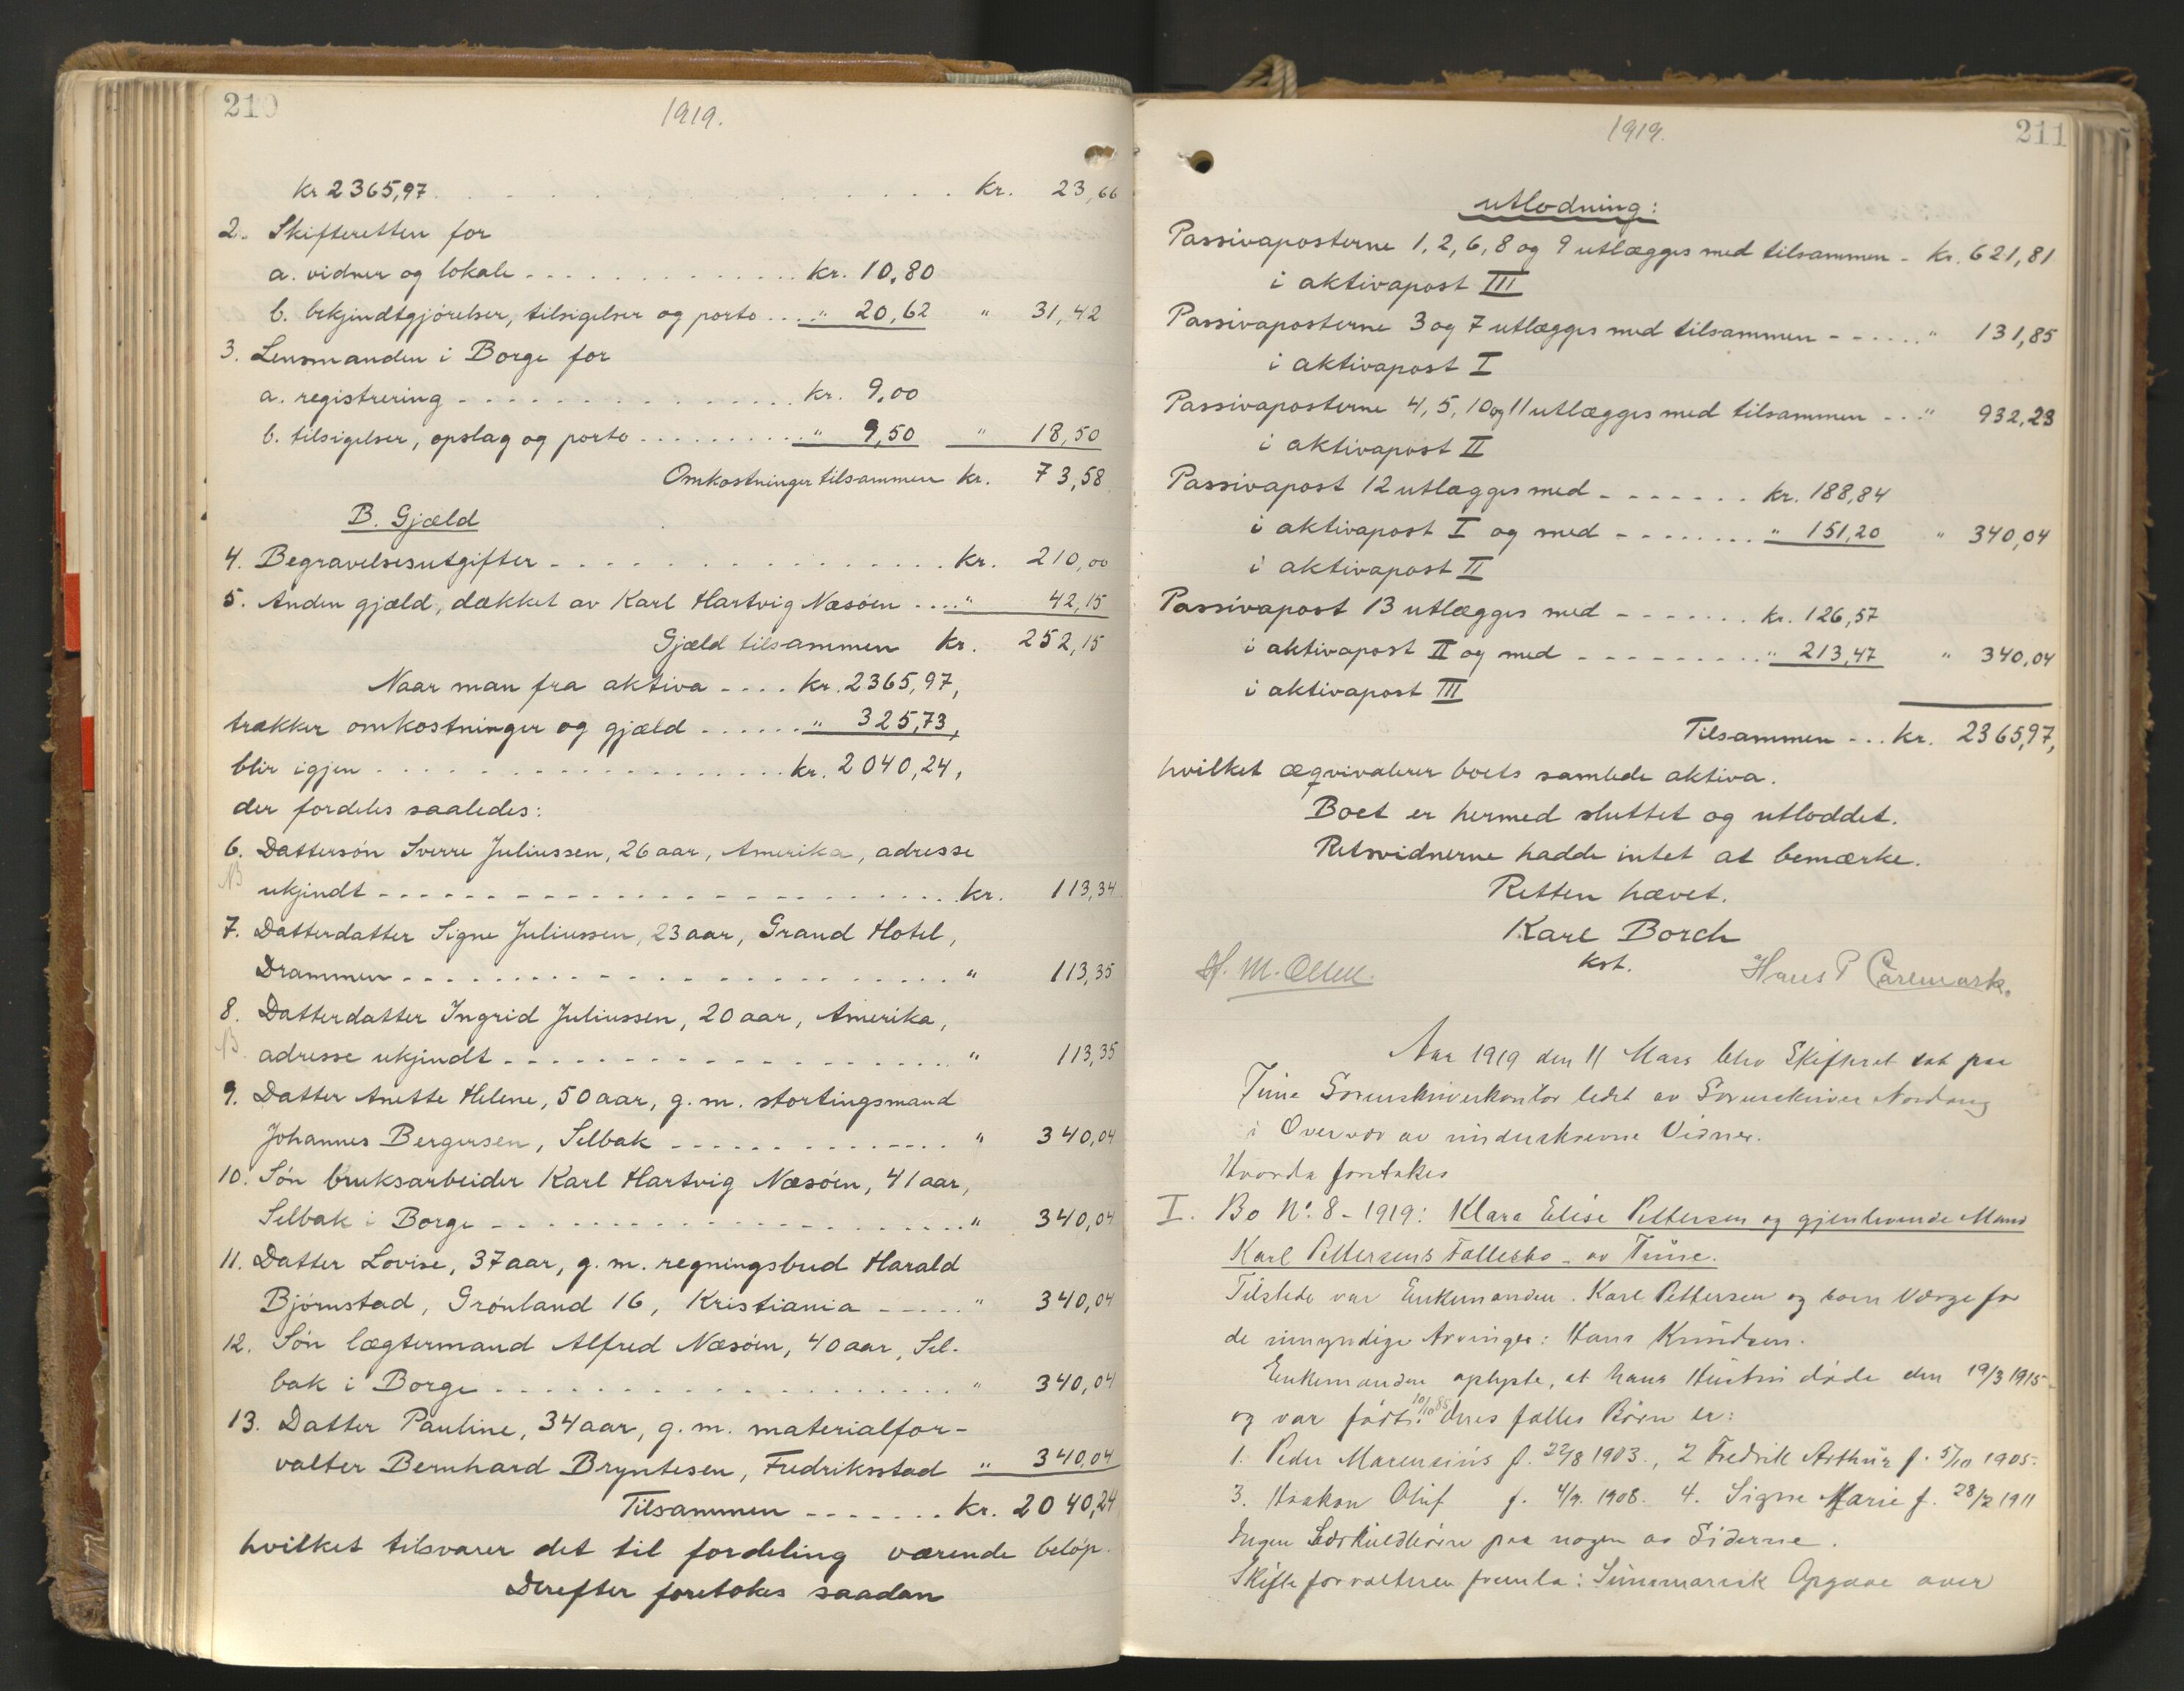 210
1919.
kr 2365,97. . . . . . . . . . . kr. 23,66
2. Skifteretten for
a. vidner og lokale - . . . . . . . . . . kr. 10,80
b. bekjendtgjørelser, tilsigelser og porto . . . " 20,62 " 31,42
3. Lensmanden i Borge for
a. registrering - . . . . . . . . . . . kr. 9,00
b. tilsigelser, opslag og porto . . . . . . . . " 9,50 " 18,50
Omkostninger tilsammen kr. 73,58
B. Gjæld
4. Begravelsesutgifter - . . . . . . . . . . . kr. 210,00
5. Anden gjæld, dækket av Karl Hartvig Næsøen . . . . " 42,15
Gjæld tilsammen kr. 252,15
Naar man fra aktiva - . . . kr. 2365,97,
trækker omkostninger og gjæld . . . . . . " 325,73,
blir igjen . . . . . . . . . . . . . kr. 2040,24,
der fordeles saaledes:
6. Dattersøn Sverre Juliussen, 26 aar, Amerika, adresse
NB ukjendt - - - - - - - - - - - - kr. 113,34
7. Datterdatter Signe Juliussen, 23 aar, Grand Hotel,
Drammen - - - - - - - - - - - - " 113,35
8. Datterdatter Ingrid Juliussen, 20 aar, Amerika,
NB. adresse ukjendt - - - - - - - - - - " 113,35
9. Datter Anette Helene, 50 aar, g. m. stortingsmand
Johannes Bergersen, Selbak - - - - - - - - " 340,04
10. Søn bruksarbeider Karl Hartvig Næsøen, 41 aar,
Selbak i Borge - - - - - - - - - - - - " 340,04
11. Datter Lovise, 37 aar, g. m. regningsbud Harald
Bjørnstad, Grønland 16, Kristiania - - - - - " 340,04
12. Søn lægtermand Alfred Næsøen, 40 aar, Sel-
bak i Borge - - - - - - - - - - - - " 340,04
13. Datter Pauline, 34 aar, g. m. materialfor-
valter Bernhard Bryntesen, Fredriksstad " 340,04
Tilsammen - - - - - - - kr. 2040,24
hvilket tilsvarer det til fordeling værende beløp.
Derefter foretokes saadan
211
1919.
utlodning:
Passivaposterne 1, 2, 6, 8 og 9 utlægges med tilsammen - kr. 621,81
i aktivapost III
Passivaposterne 3 og 7 utlægges med tilsammen - - - . . . " 131,85
i aktivapost I
Passivaposterne 4, 5, 10 og 11 utlægges med tilsammen - . . " 932,23
i aktivapost II
Passivapost 12 utlægges med - - - - - . . kr. 188,84
i aktivapost I og med - - - - - . . . " 151,20 " 340,04
i aktivapost II
Passivapost 13 utlægges med - - - - . . . kr. 126,57
i aktivapost II og med - - - - - - - . . . " 213,47 " 340,04
i aktivapost III
Tilsammen - . . kr. 2365,97,
hvilket æqvivalerer boets samlede aktiva.
Boet er hermed sluttet og utloddet.
Retsvidnerne hadde intet at bemærke.
Retten hævet.
Karl Borch
kst.
H. M. Hans P Caremark.
Aar 1919 den 11 Mars blev Skifteret sat paa
Tune Sorenskriverkontor ledet av Sorenskriver Nordang
i Overvær av underskrevne Vidner.
Hvorda foretokes
I. Bo No. 8 - 1919: Klara Elise Pettersen og gjenlevende Mand
Karl Pettersens Fællesbo - av Tune.
Tilstede var Enkemanden Karl Pettersen og som Værge for
de umyndige Arvinger: Hans Knudsen.
Enkemanden oplyste, at hans Hustru døde den 19/3 1915
og var født 10/10 85. deres fælles Børn er:
1. Peder Marensius f. 22/8 1903., 2 Fredrik Arthur f. 5/10 1905.
3. Haakon Oluf f. 4/9. 1908. 4. Signe Marie f. 28/2 1911
Ingen Særkuldbørn paa nogen av Siderne.
Skifteforvalteren fremla: Summarisk Opgave over